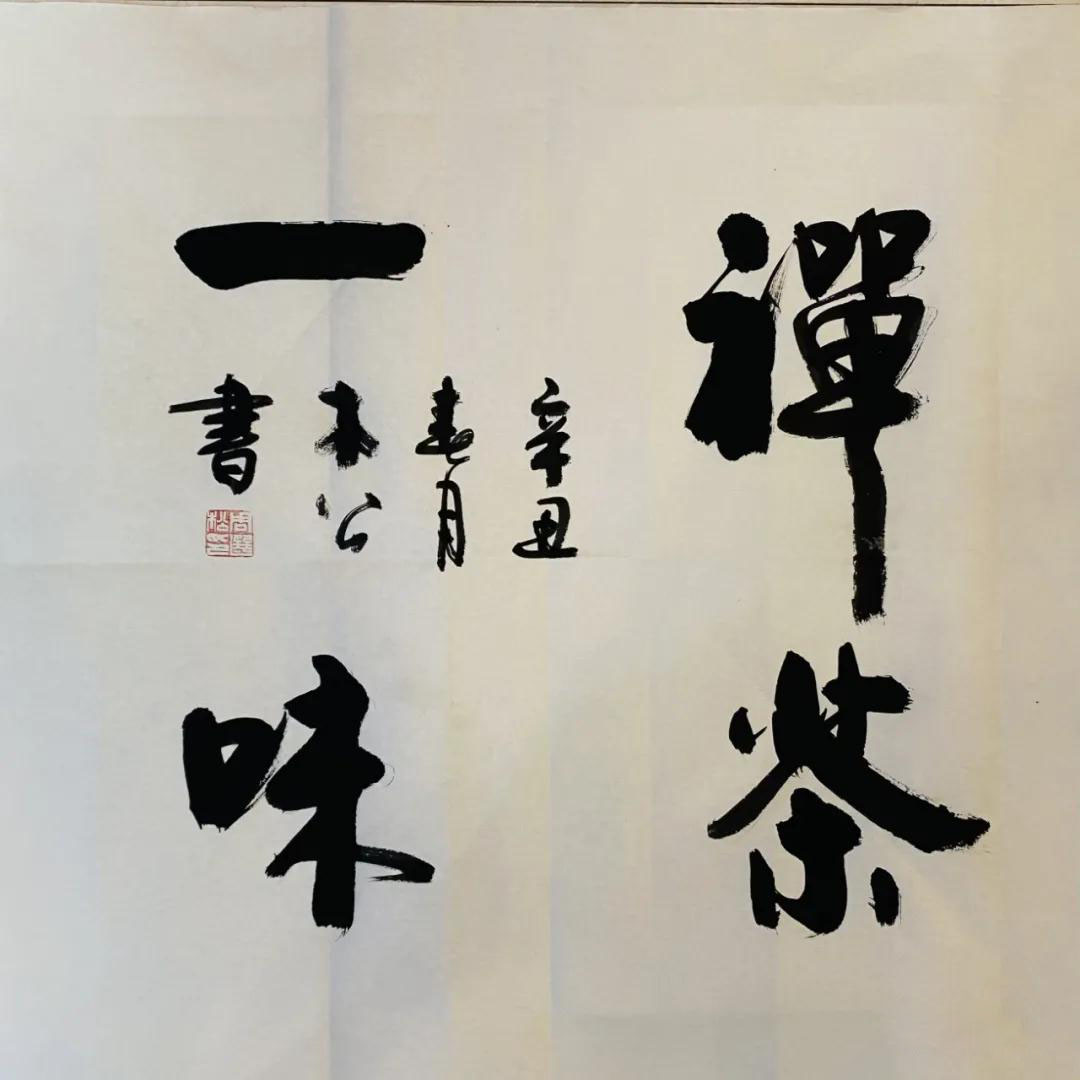 禪茶
一味
辛丑
春月
木公
書